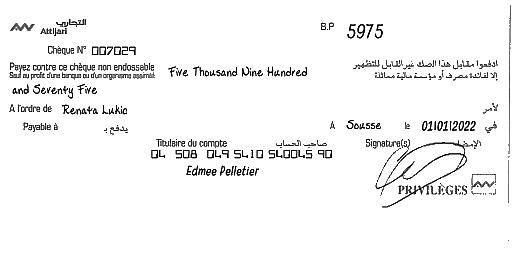 التجاري
Attijari
B.P 5975
Chèque N° 007029
Payez contre ce chèque non endossable
Seul au profit d'une banque ou d'un organisme assimilé
Five Thousand Nine Hundred
ادفعوا مقابل هذا الصك غير القابل للتظهير
إلا لفائدة مصرف أو مؤسسة مالية مماثلة
and Seventy Five
A l'ordre de Renata Lukic لأمر
Payable à يدفع بـ A Sousse le 01/01/2022 في
Titulaire du compte صاحب الحساب Signature(s) الإمضاء
04 508 049 5410 540045 90
Edmee Pelletier
PRIVILÈGES